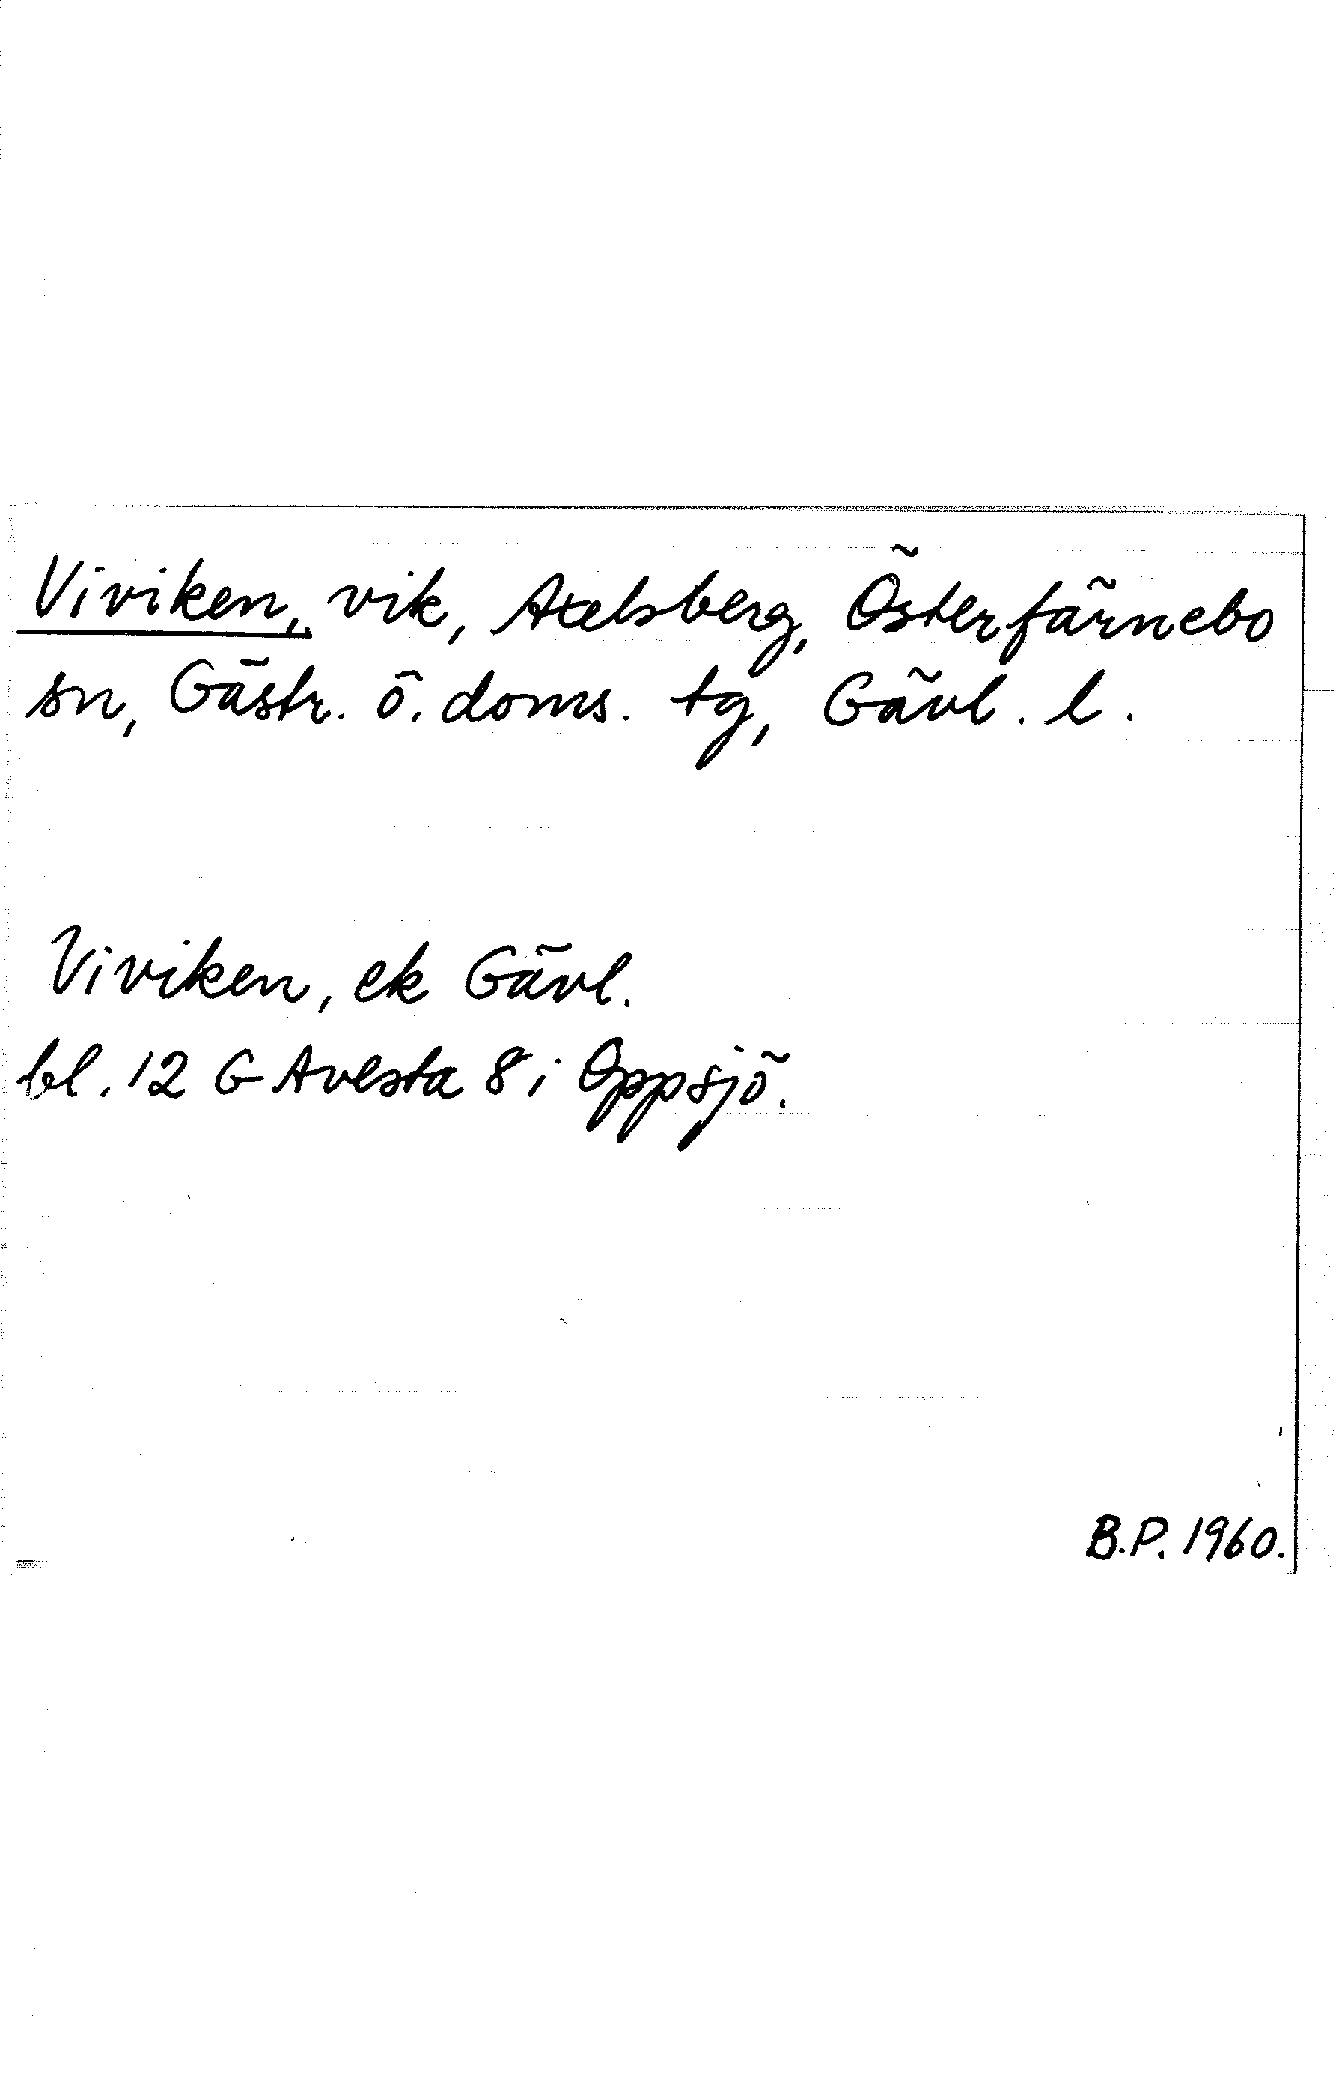 Viviken, vik, Axelsberg, Österfärnebo
sn, Gästr. ö. doms. tg, Gävl. l.
Viviken, ek Gävl.
bl. 12 G Avesta 8 i Oppsjö.
B.P. 1960.